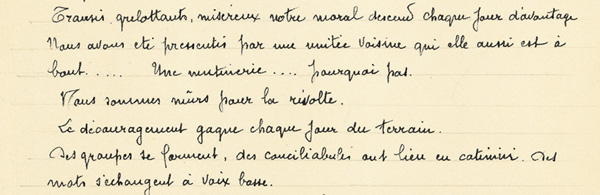 Transis, grelottants, miséreux notre moral descend chaque jour d'avantage
Nous avons été pressentis par une unitée voisine qui elle aussi est à
bout..... Une mutinerie.... pourquoi pas.
Nous sommes mûrs pour la révolte.
Le découragement gagne chaque jour du terrain.
Des groupes se forment, des conciliabules ont lieu en catimini. Des
mots s'échangent à voix basse.